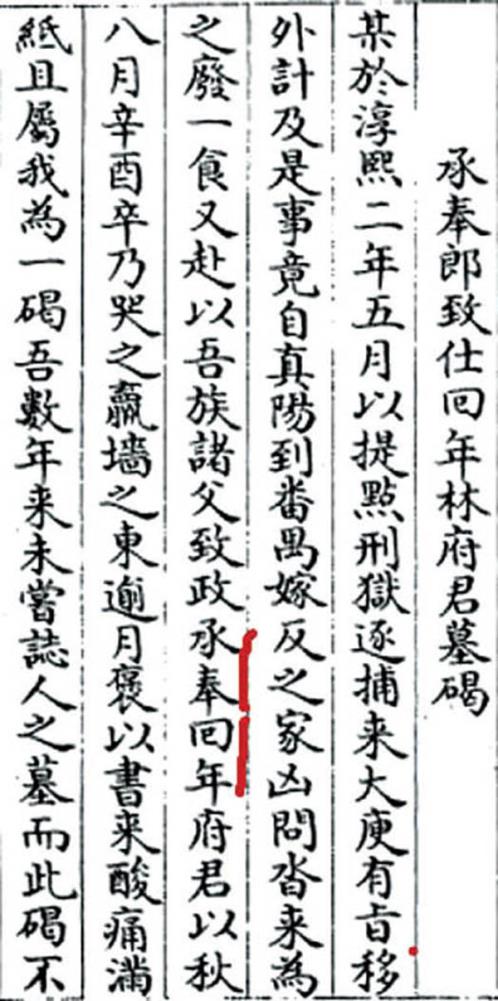 承奉郎致仕回年林府君墓碣
某於淳熙二年五月以提點刑獄逐捕来大庾有旨移
外計及是事竟自真陽到番禺嫁反之家凶問沓来為
之廢一食又赴以吾族諸父致政承奉回年府君以秋
八月辛酉卒乃哭之羸墻之東逾月褒以書来酸痛滿
紙且屬我為一碣吾數年来未嘗誌人之墓而此碣不